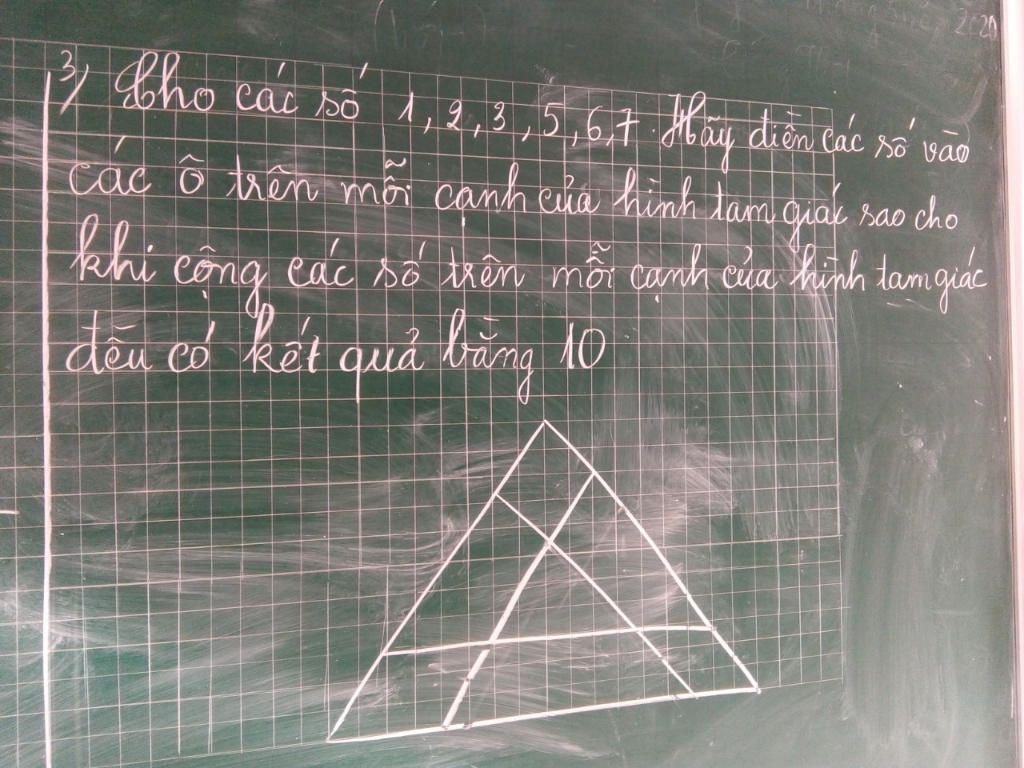 3) Cho các số 1, 2, 3, 5, 6, 7. Hãy điền các số vào
các ô trên mỗi cạnh của hình tam giác sao cho
khi cộng các số trên mỗi cạnh của hình tam giác
đều có kết quả bằng 10